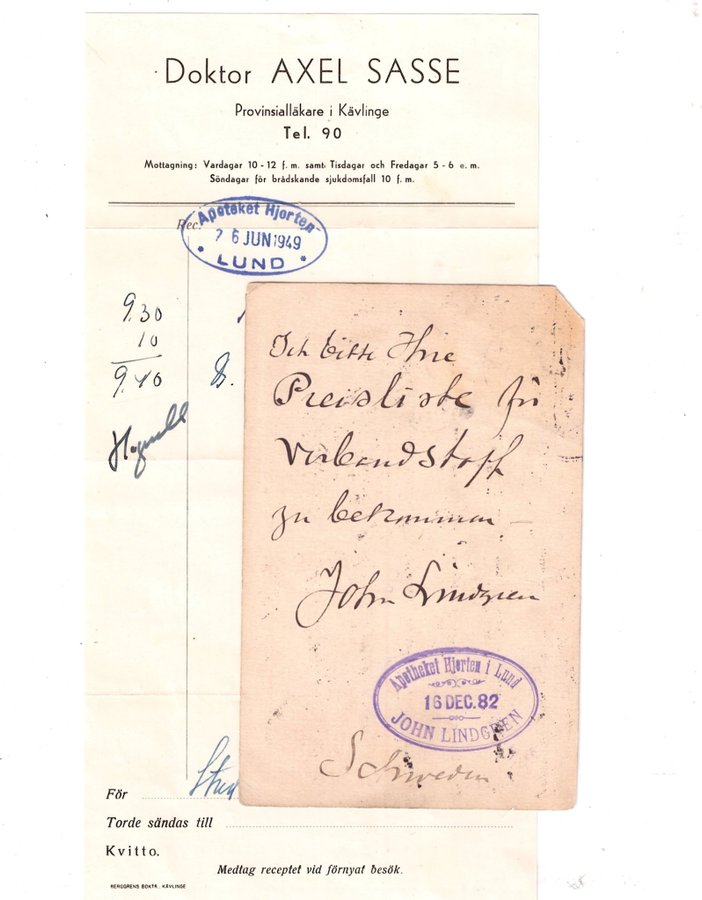 Doktor AXEL SASSE
Provinsialläkare i Kävlinge
Tel. 90
Mottagning: Vardagar 10-12 f. m. samt Tisdagar och Fredagar 5-6 e. m.
Söndagar för brådskande sjukdomsfall 10 f. m.
Rec.
Apoteket Hjorten
26 JUN 1949
LUND
9.30
10
9.40
Ich bitte Ihre
Preisliste für
Verbandstoff
zu bekommen –
John Lindgren
Apotheket Hjorten i Lund
16 DEC. 82
JOHN LINDGREN
Schweden
För
Torde sändas till
Kvitto.
Medtag receptet vid förnyat besök.
BERGGRENS BOKTR., KÄVLINGE